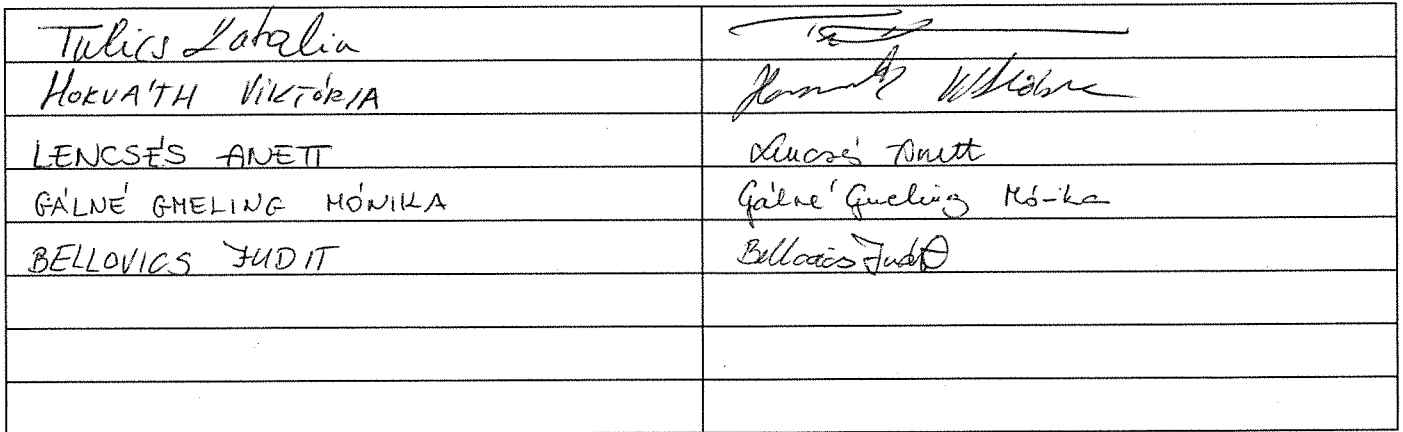 Tulics Katalin
HORVÁTH VIKTÓRIA
LENCSÉS ANETT Lencsés Anett
GÁLNÉ GMELING MÓNIKA Gálné Gmeling Mónika
BELLOVICS JUDIT Bellovics Judit